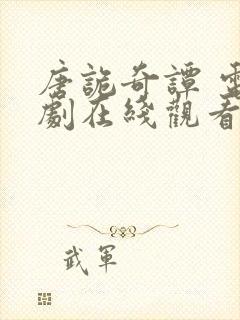 唐詭奇譚 電
劇在綫觀看
武軍